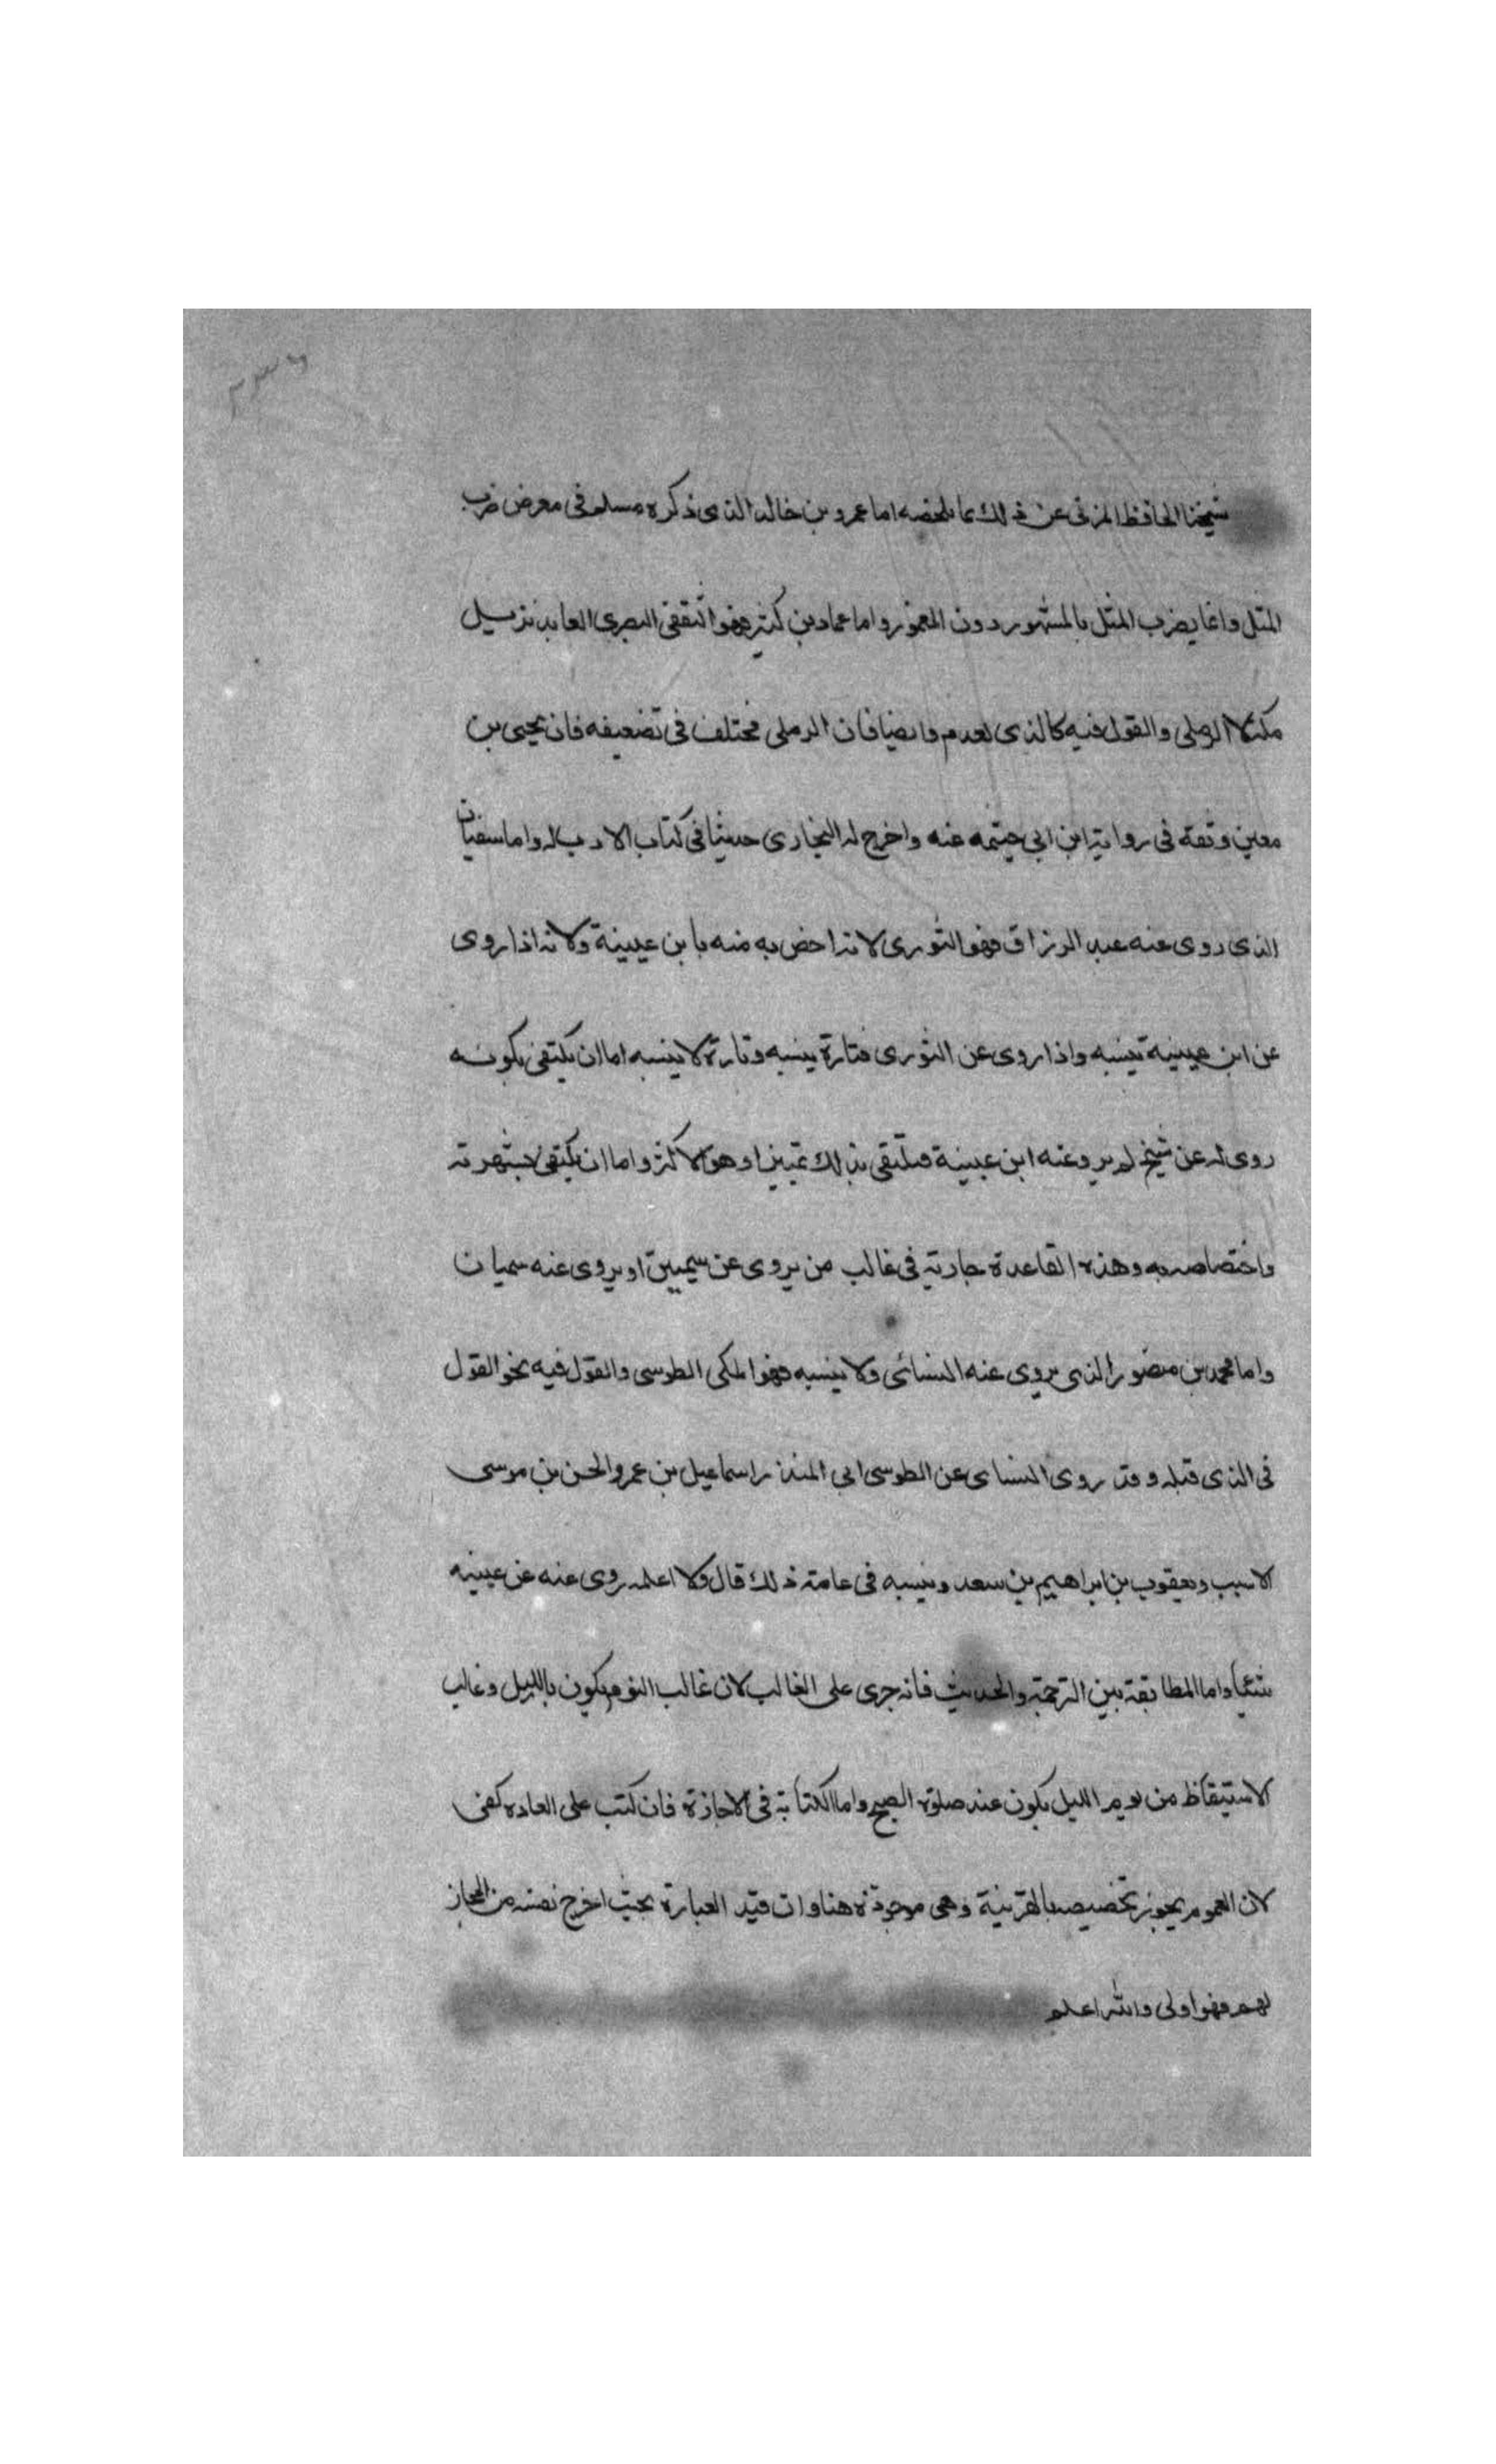 ٢٣٦
شيخنا الحافظ المزى عن ذلك بما ملخصه اما عمرو بن خالد الذى ذكره مسلم فى معرض ضرب
المثل وانما يضرب المثل بالمشهور دون المغمور واما عباد بن كثير فهو الثقفى البصرى العابد نزيل
مكة لا الرملى والقول فيه كالذى تقدم وايضا فان الرملى مختلف فى تضعيفه فان يحيى بن
معين وثقه فى رواية ابن ابى خيثمه عنه واخرج له البخارى حديثا فى كتاب الادب له واما سفيان
الذى روى عنه عبد الرزاق فهو الثورى لانه اخص به منه بابن عيينة ولانه اذا روى
عن ابن عيينة ينسبه واذا روى عن الثورى فتارة ينسبه وتارة لا ينسبه اما ان يكتفى بكونه
روى له عن شيخ لم يرو عنه ابن عيينة فيكتفى بذلك تمييزا وهو الاكثر واما ان يكتفى بشهرته
واختصاصه به وهذه القاعدة جارية فى غالب من يروى عن سميين او يروى عنه سميان
واما محمد بن منصور الذى يروى عنه النسائى ولا ينسبه فهو المكى الطوسى والقول فيه نحو القول
فى الذى قبله وقد روى النسائى عن الطوسى ابى المنذر اسماعيل بن عمر والحسن بن موسى
الاسبب ويعقوب بن ابراهيم بن سعد وينسبه فى عامة ذلك قال ولا اعلمه روى عنه عن عيينه
شيئا واما المطابقة بين الترجمة والحديث فانه جرى على الغالب لان غالب النوم يكون بالليل وغالب
الاستيقاظ من نوم الليل يكون عند صلوة الصبح واما الكتابة فى الاجازة فان كتب على العاده كفى
لان العموم يجوز تخصيصه بالقرينة وهى موجودة هنا وان قيد العبارة بحيث اخرج نفسه من المجاز
لهم فهو اولى والله اعلم